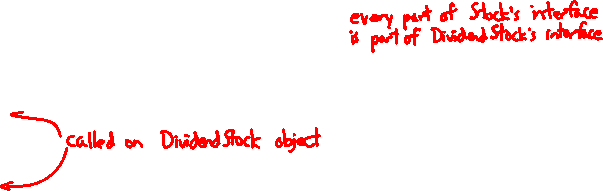 every part of Stock's interface
is part of DividendStock's interface
called on DividendStock object